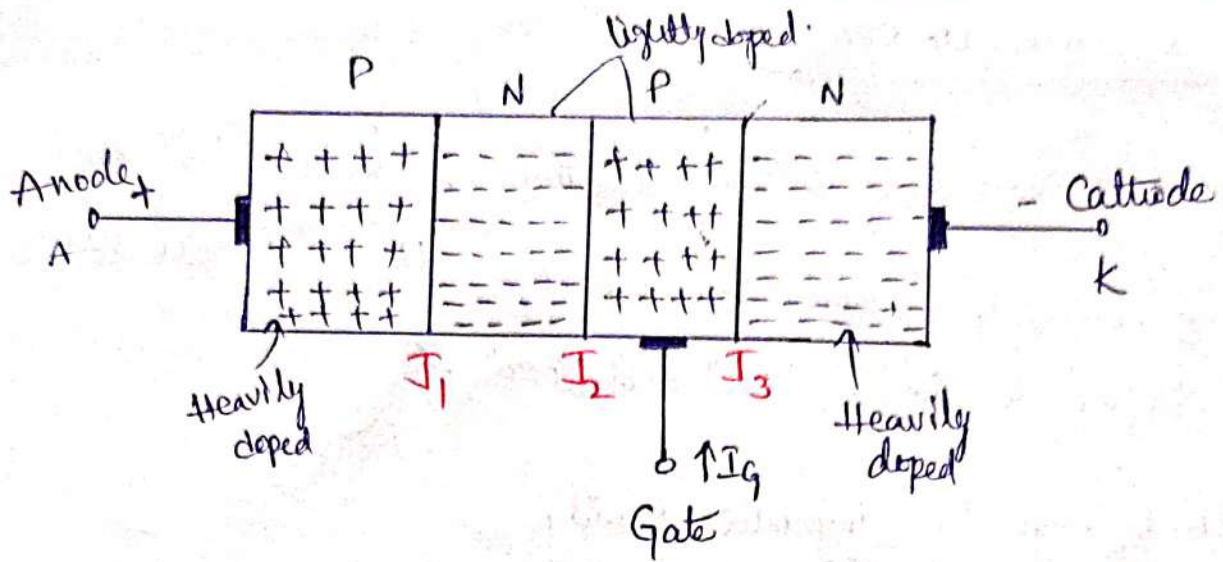 lightly doped.
P N P N
Anode + - Cathode
A K
J1 J2 J3
Heavily
doped
Heavily
doped
↑IG
Gate